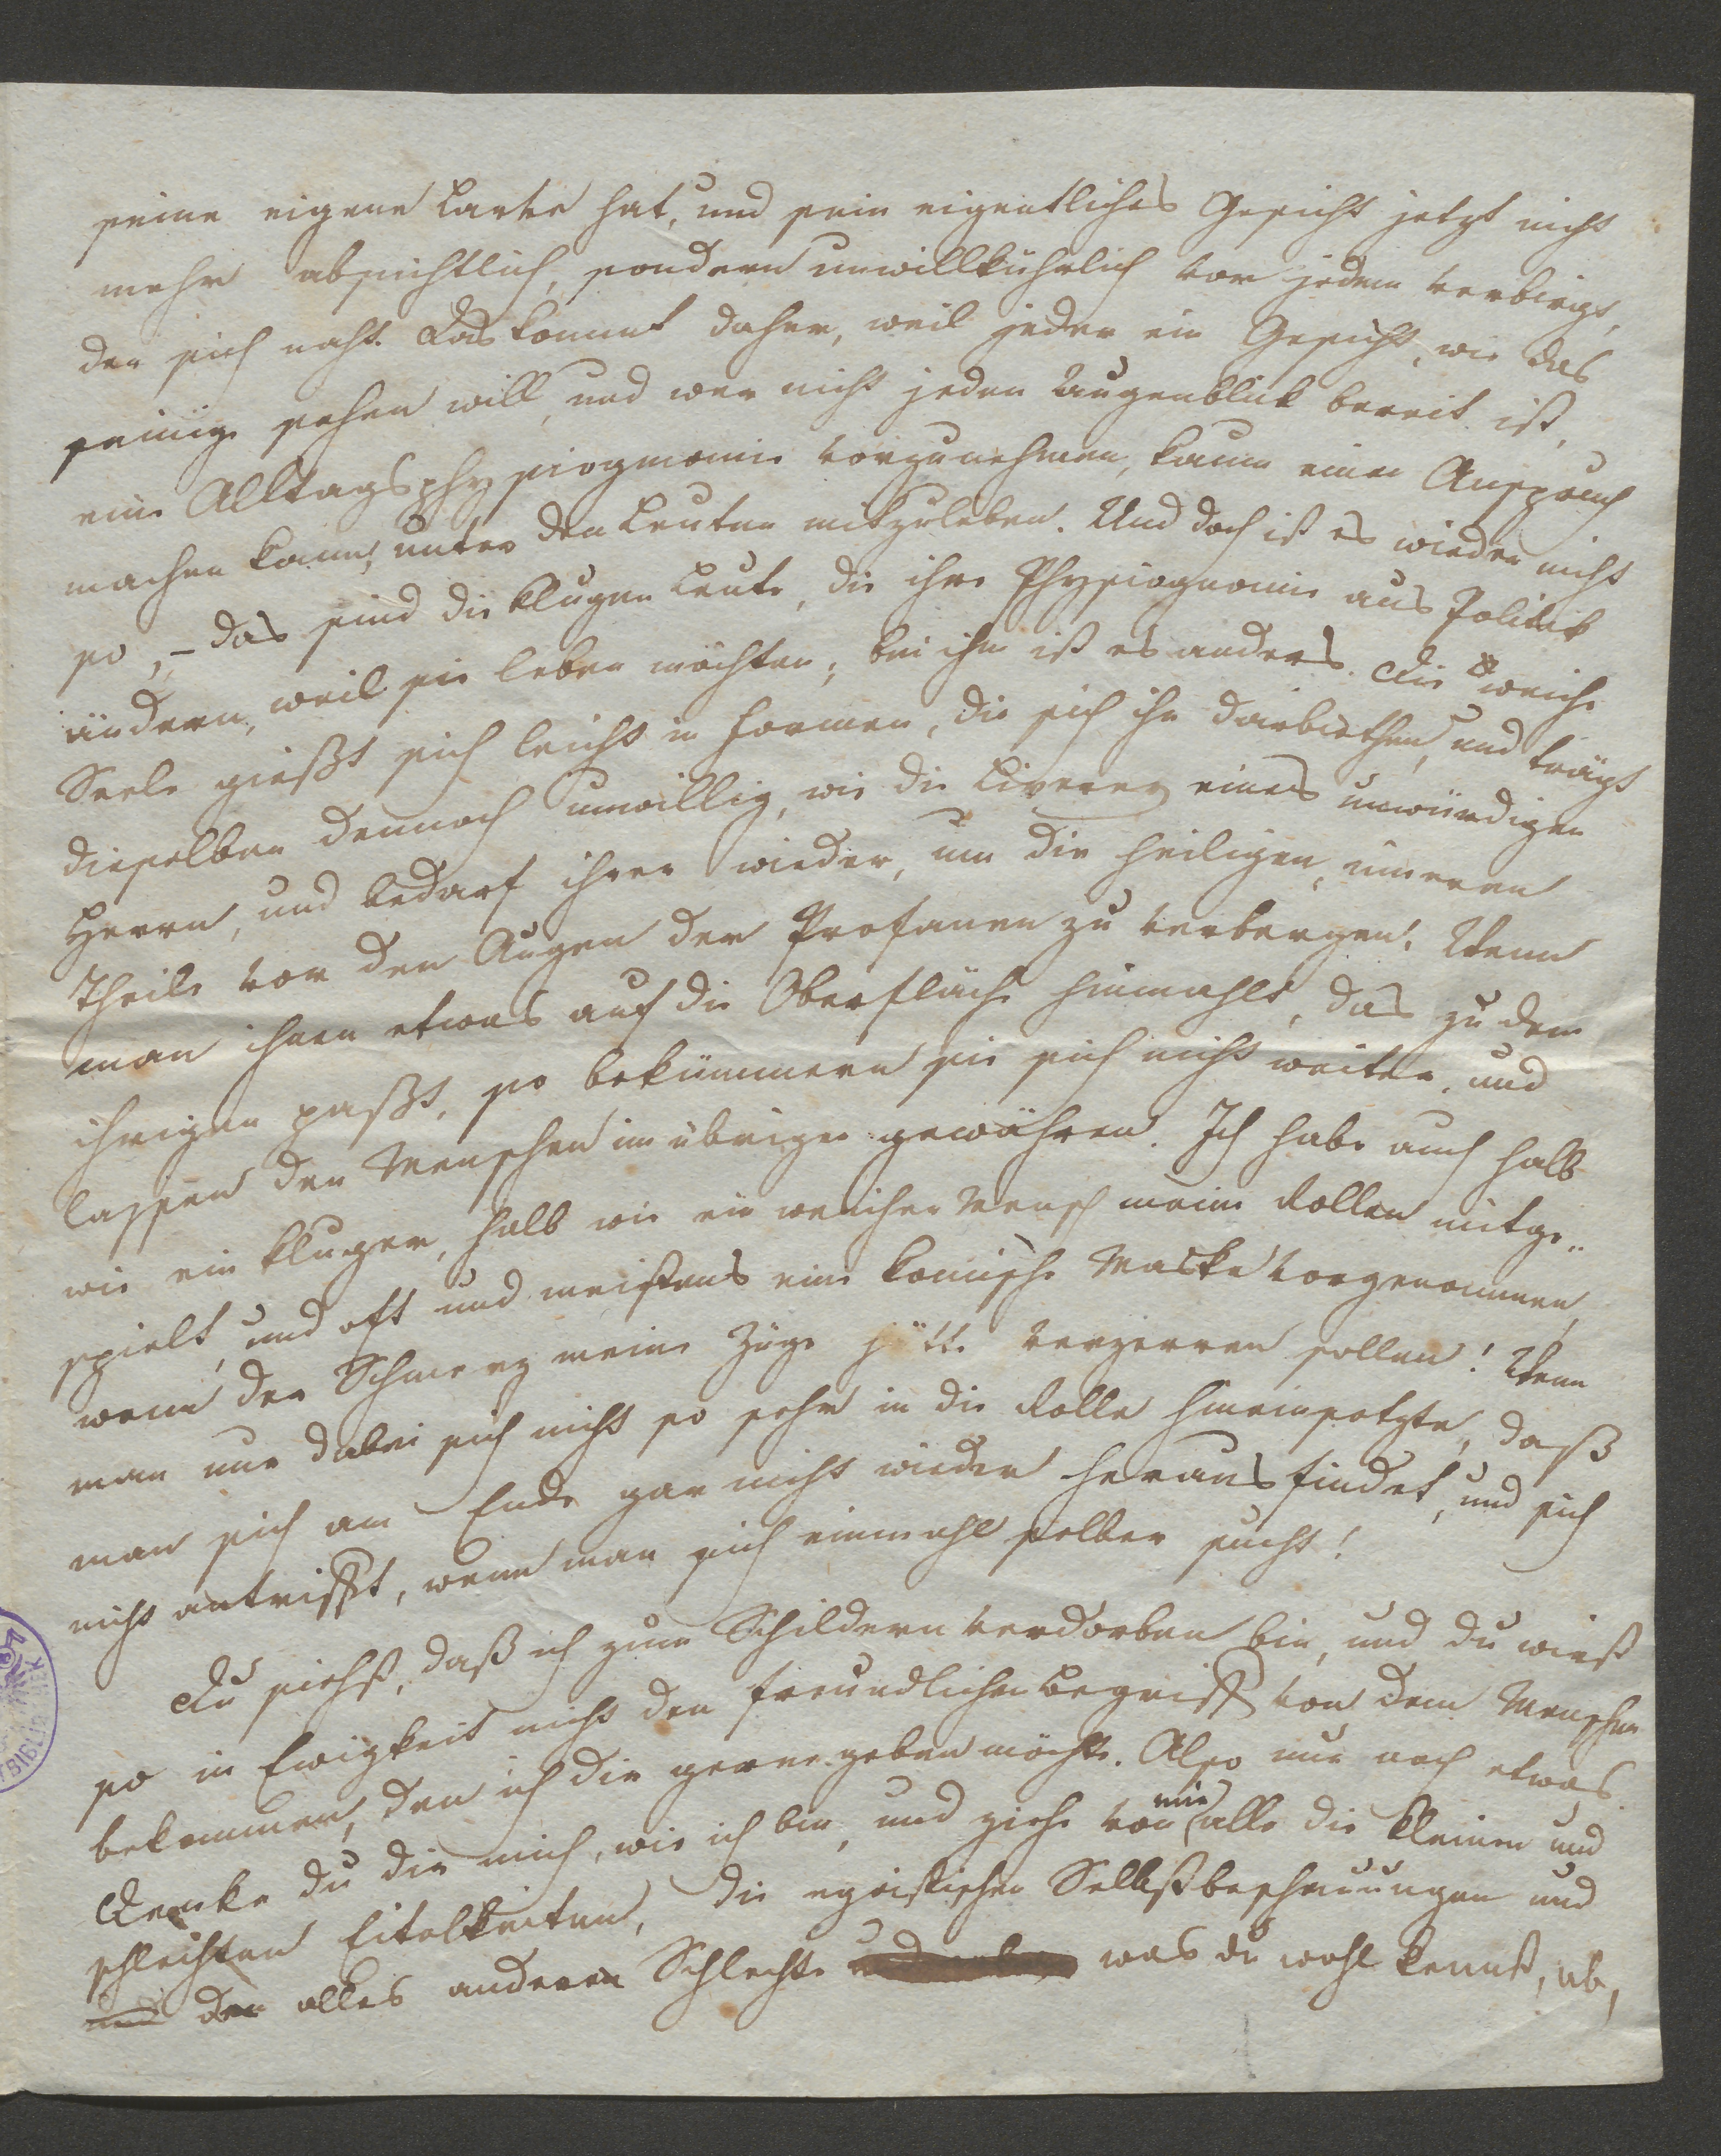 seine eigene Larve hat, und sein eigentliches Gesicht jetzt nicht
mehr absichtlich, sondern unwillkührlich vor jedem verbirgt,
der sich naht. Das kommt daher, weil jeder ein Gesicht, wie das
seinige sehen will, und wer nicht jeden Augenblick bereit ist,
eine Alltagsphysiognomie vorzunehmen, kaum einen Anspruch
machen kann, unter den Leuten mitzuleben. Und doch ist es wieder nicht
so, – das sind die klugen Leute, die ihre Physiognomie aus Politik
ändern, weil sie leben möchten; bei ihm ist es anders. Die weiche
Seele gießt sich leicht in Formen, die sich ihr darbiethen, und trägt
dieselben dennoch unwillig, wie die Liverey eines unwürdigen
Herrn, und bedarf ihrer wieder, um die heiligen, inneren
Theile vor den Augen der Profanen zu verbergen. Wenn
man ihnen etwas auf die Oberfläche hinmahlt, das zu dem
ihrigen paßt, so bekümmern sie sich nicht weiter, und
lassen den Menschen im übrigen gewähren. Ich habe auch halb
wie ein kluger, halb wie ein weicher Mensch meine Rollen mitge„
spielt, und oft und meistens eine komische Maske vorgenommen,
wenn der Schmerz meine Züge hätte verzerren sollen! Wenn
man nur dabei sich nicht so sehr in die Rolle hineinsetzte, daß
man sich am Ende gar nicht wieder herausfindet, und sich
nicht antrifft, wenn man sich einmahl selber sucht!
Du siehst, daß ich zum Schildern verdorben bin, und du wirst
so in Ewigkeit nicht den freundlichen Begriff von dem Menschen
bekommen, den ich dir gerne geben möchte. Also nur noch etwas.
Denke du dir mich, wie ich bin, und ziehe von mir alle die kleinen und
schlechten Eitelkeiten, die egoistischen Selbstbeschauungen und
und den alles anderen Schlechte was du wohl kennst, ab,